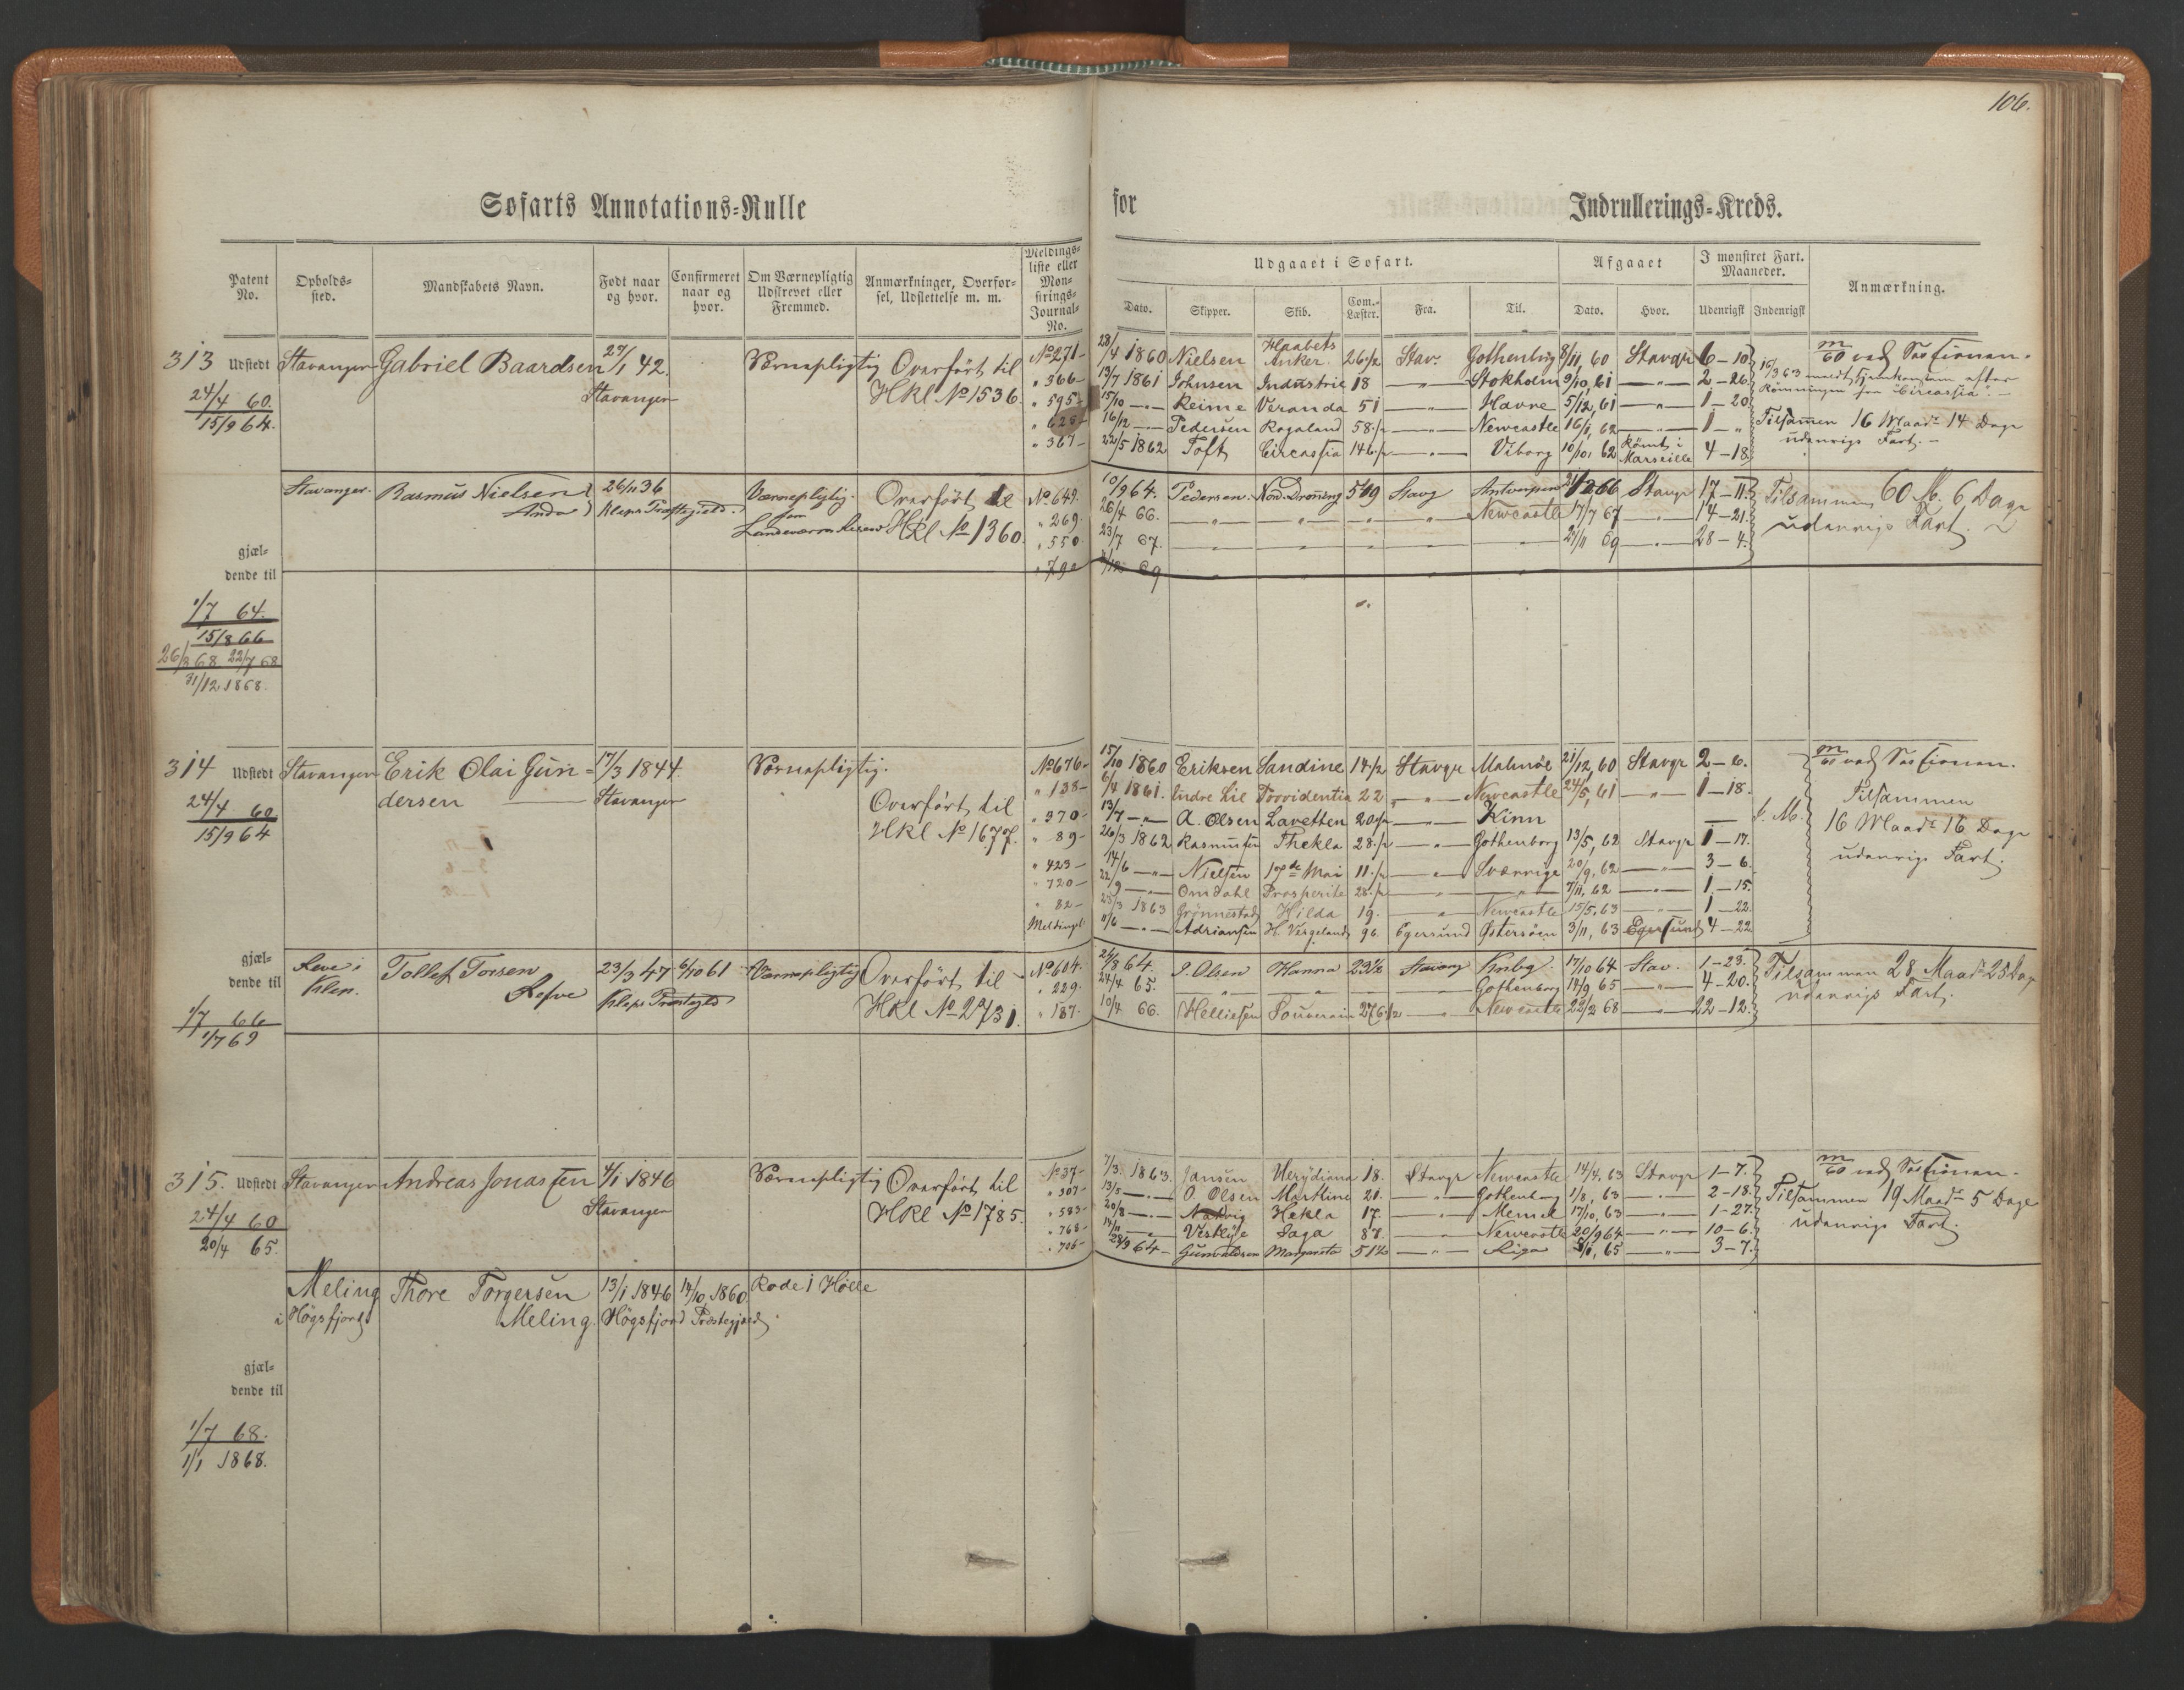 106.
Søfarts Annotations-Rulle for Indrullerings-Kreds.
Patent No.
Opholds-sted.
Mandskabets Navn.
Født naar og hvor.
Confirmeret naar og hvor.
Om Værnepligtig Udskrevet eller Fremmed.
Anmærkninger, Overførsel, Udslettelse m. m.
Meldings-liste eller Mønstrings-Journal-No.
Udgaaet i Søfart.
Dato.
Skipper.
Skib.
Com.-Læster.
Fra.
Til.
Afgaaet
Dato.
Hvor.
I mønstret Fart. Maaneder.
Udenrigsk
Indenrigsk
Anmærkning.
313 Udstedt Stavanger Gabriel Baardsen 27/1 42. Værnepligtig Overført til No 271 28/4 1860 Nielsen Haabets Anker 26 1/2 Stav. Gothenborg 8/11 60 Stavgr 6-10
24/4 60. Stavanger HKl No 1536. " 366 13/7 1861 Johnsen Industrie 18 " Stokholm 9/10, 61 " 2-26
15/9 64. " 595 15/10 " Reime Veranda 51 " Havre 5/12, 61 " 1-20
" 625 16/12 " Pedersen Rogaland 58 1/2 " Newcastle 16/1, 62 " 1 "
" 367 22/5 1862 Toft Circassia 146 1/2 " Viborg 10/10, 62 Römt i Marseille 4-18
60 ved Sessionen.
Römningen fra "Circassia".
Tilsammen 16 Maadr 14 Dage
udenrigs Fart.
Stavanger. Rasmus Nielsen 26/11 36 Værnepligtig. Overført til No 649. 10/9 64. Pedersen. Nord. Dronning 519 Stavg Antwerpen 66 Stavgr 17-11.
Anda Klepps Præstegield. som HKl No 1360. " 269. 26/4 66. " " " " Newcastle 17/7 67 " 14-21.
" 550 23/7 67. " " " " " 21/11 69 " 28-4.
" 790 69 " " " " "
Tilsammen 60 M. 6 Dage
udenrigs Fart.
gjæl-
dende til
1/7 64.
15/8 66
26/3 68 22/7 68
31/12 1868.
314 Udstedt Stavanger Erik Olai Gun- 17/3 1844. Værnepligtig. No 676 15/10 1860 Eriksen Sandine 14 1/2 Stavgr Malmöe 21/12, 60 Stavgr 2-6.
24/4 60 dersen Stavanger Overført til " 138 6/4 1861. Endre Lie Providentia 22 " Newcastle 24/5, 61 " 1-18.
15/9 64 HKl No 1677. " 370 13/7 " A. Olsen Lavetten 20 1/2 " Kinn
" 89 26/3 1862 Rasmussen Thekla 28 1/2 " Gothenborg 13/5, 62 Stavgr 1-17.
" 423 14/6 " Nielsen 17de Mai 11 1/2 " Sverrige 20/9, 62 " 3-6.
" 720 22/9 " Omdahl Prosperite 28 1/2 " " 7/11, 62 " 1-15.
" 82 25/3 1863 Grönnestad Hilda 19. " Newcastle 15/5, 63 " 1-22.
Meldingsl. 11/6 " Adriansen H. Vergeland 96. Egersund Østersöen 3/11, 63 Egersund 4-22
60 ved Sessionen.
Tilsammen
16 Maadr 16 Dage
udenrigs Fart.
gjæl-
dende til
1/7 66
1/7 69
Reve i Klep. Tollef Torsen 23/3 47 6/10 61 Værnepligtig Overført til No 604. 24/8 64. J. Olsen Hanna 23 1/2 Stavang Knbg. 17/10 64 Stav. 1-23.
Refve Klepps Præstegld HKl No 2731. " 229. 24/4 65. " " " " Gothenborg 14/9 65 " 4-20.
" 187. 10/4 66. Helliesen Souverain 276 1/2 " Newcastle 22/2 68 " 22-12.
Tilsammen 28 Maadr 25 Dag
udenrigs Fart.
315. Udstedt Stavanger Andreas Jonassen 4/1 1846 Værnepligtig Overført til No 37 7/3 1863 Jansen Merydiana 18. Stavgr Newcastle 14/4, 63 Stavgr 1-7.
24/4 60 Stavanger HKl No 1785. " 307 13/5 " O. Olsen Marthine 21. " Gothenborg 1/8, 63 " 2-18.
20/4 65. " 583 20/8 " Natvig Hekla 17. " Memel 17/10, 63 " 1-27.
" 768 " Vestlye Saga 87. " Newcastle 20/9 64 " 10-6.
" 706 28/9 64 Gunvaldsen Margareta 51 1/2 " Riga 5/1, 65 " 3-7.
60 ved Sessionen.
Tilsammen 19 Maadr 5 Dage
udenrigs Fart.
Meling Thore Torgersen 13/1 1846 14/10 1860. Rode i Hölle
i Högsfjord Meling. Högsfjord Præstegjæld.
gjæl-
dende til
1/7 68.
1/1 1868.